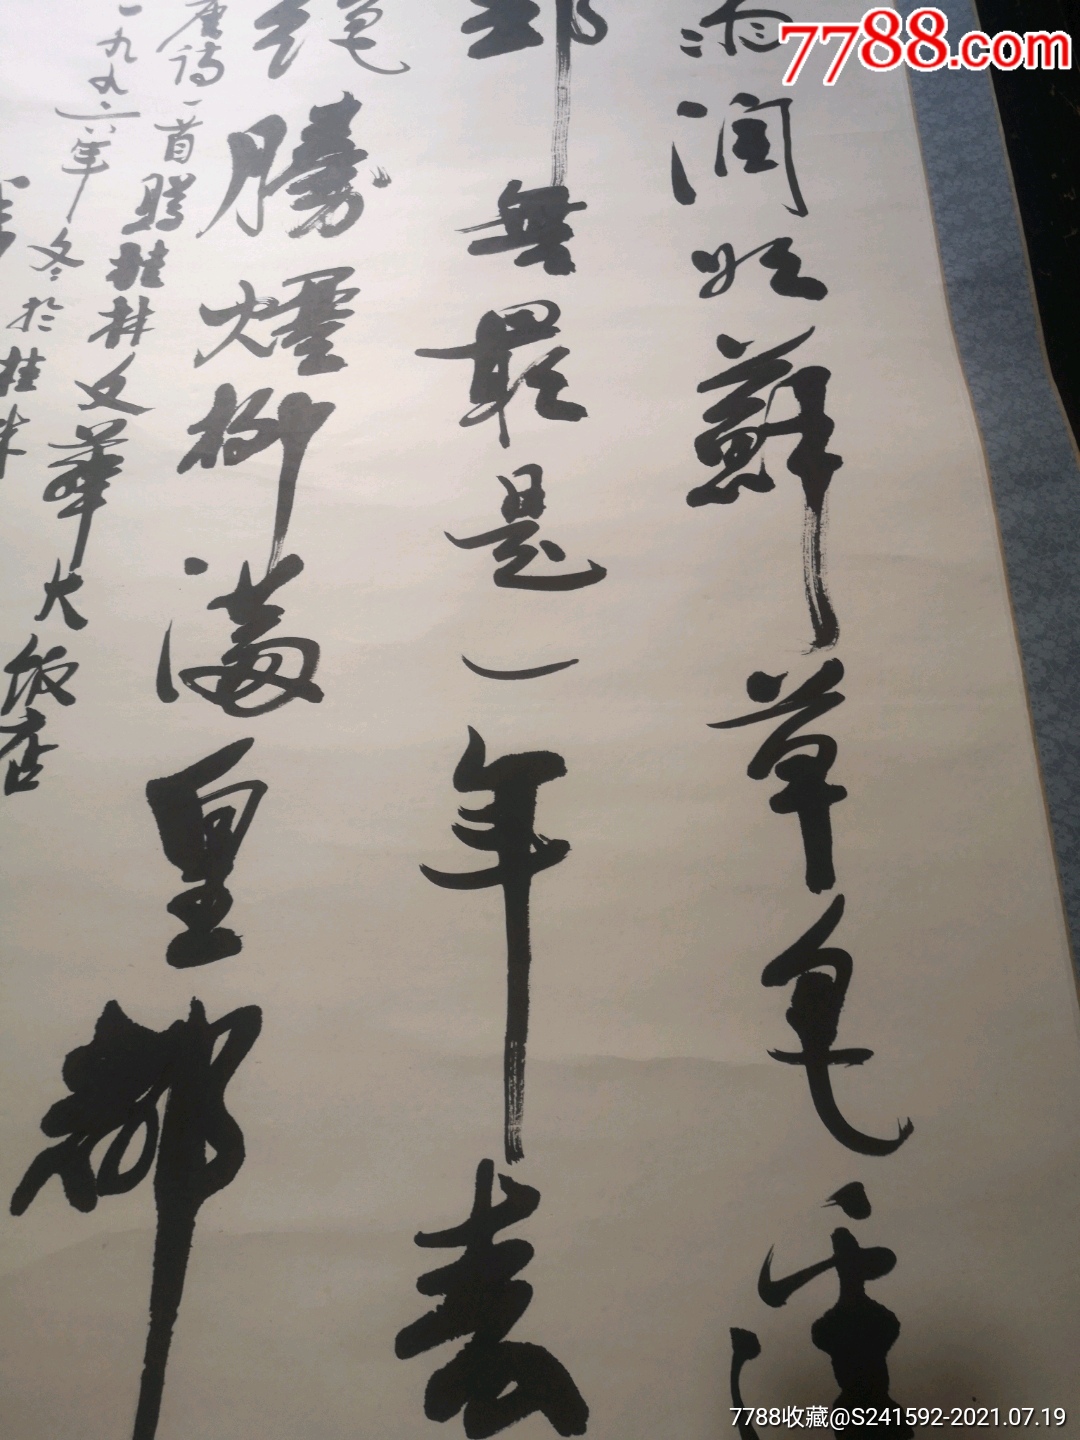 7788.com
雨潤如蘇草色遙
却無最是一年春
絕勝煙柳滿皇都
唐詩一首贈桂林文華大飯店
一九九六年冬於桂林
7788收藏@S241592-2021.07.19